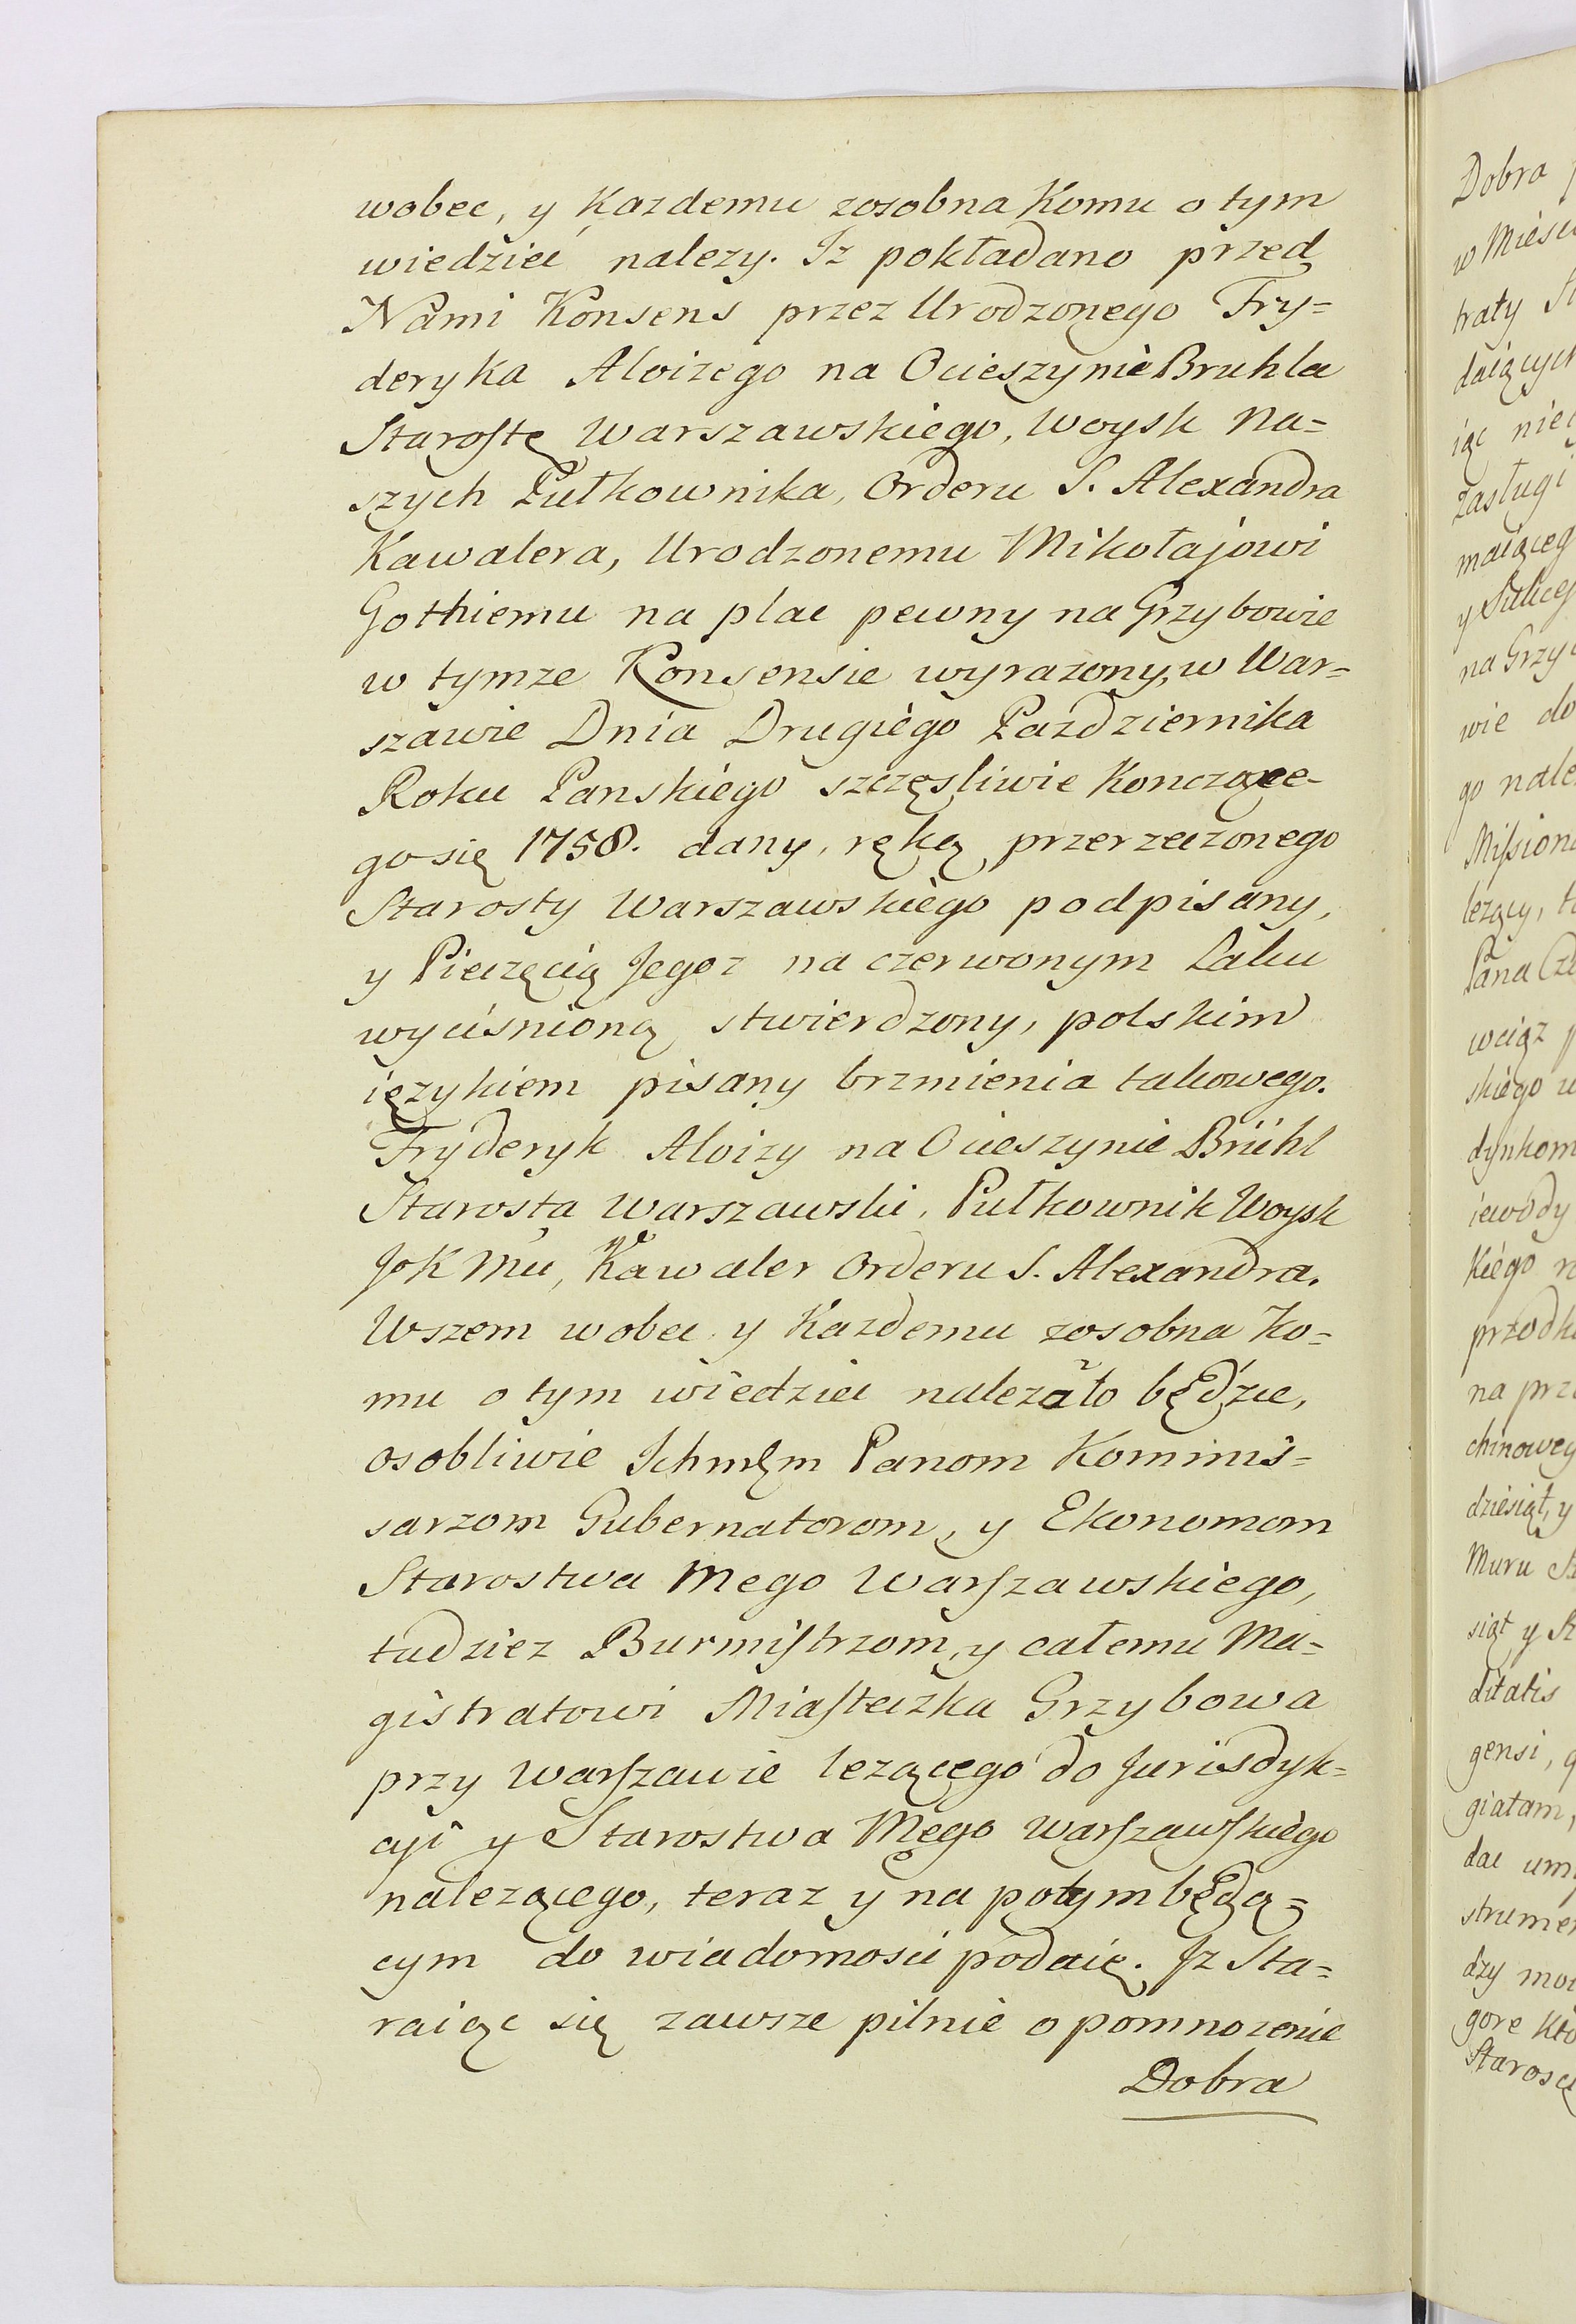 wobec, y Kazdemu zosobna Komu o tym
wiedzieć należy. Iz pokładano przed
Nami Konsens przez Urodzonego Fry=
deryka Aloizego na Ocieszynie Bruhla
Starostę Warszawskiego, Woysk Na=
szych Pułkownika, Orderu S. Alexandra
Kawalera, Urodzonemu Mikołajowi
Gothiemu na plac pewny na Grzybowie
w tymze Konsensie wyrazony, w War=
szawie Dnia Drugiego Października
Roku Panskiego szczęsliwie Konczące-
go się 1758. dany, ręką przerzeczonego
Starosty Warszawskiego podpisany,
y Pieczęcią Jegoz na czerwonym Laku
wyciśnioną stwierdzony, polskim
ięzykiem pisany brzmienia takowego.
Fryderyk Aloizy na Ocieszynie Brühl
Starosta Warszawski, Pułkownik Woysk
JoKMci, Kawaler Orderu S. Alexandra.
Wszem wobec y Kazdemu zosobna Ko=
mu o tym wiedziec nalezało będzie,
osobliwie Ichmęm Panom Kommis=
sarzom Gubernatorom, y Ekonomom
Starostwa Mego Warszawskiego,
tudziez Burmistrzom, y całemu Ma=
gistratowi Miasteczka Grzybowa
przy Warszawie lezącego do Jurisdyk=
cyi y Starostwa Mego Warszawskiego
nalezącego, teraz y na potym będą=
cym do wiadomosci podaię. Iz Sta=
raiąc się zawsze pilnie o pomnozenie
Dobra
Dobra
w Miesc
traty St
daiących
iąc nieg
zasługi
maiąceg
y Sukces
na Grzy
wie do
go nale
Missiona
lezący, t
Pana Cze
wciąz p
skiego w
dynkom
iewody
Kiego r
przodk
na prz
chinoweg
dziesiąt, y
Muru St
siąt y St
ditatis
gensi, q
giatam,
dac um
strumen
dzy moi
gore Kto
Starosc